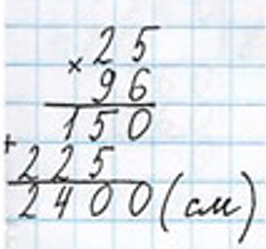 25
× 96
150
+ 225
2400 (см)